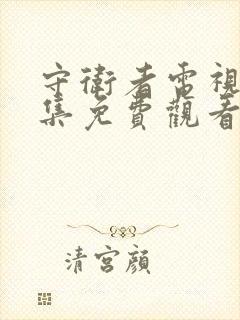 守衛者電視
集免費觀看
清宮顏